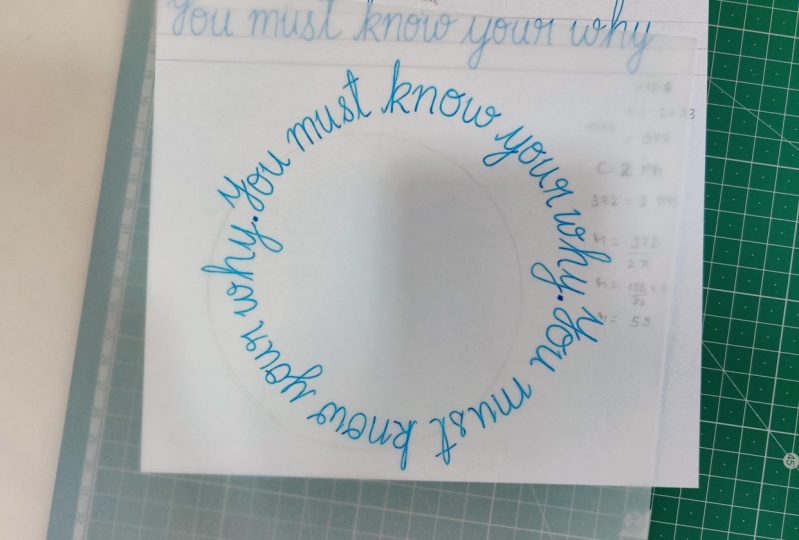 You must know your why
You must know your why. You must know your why.
C = 2 πr
372 = 2 πr
r = 372
2 π
r = 59
45